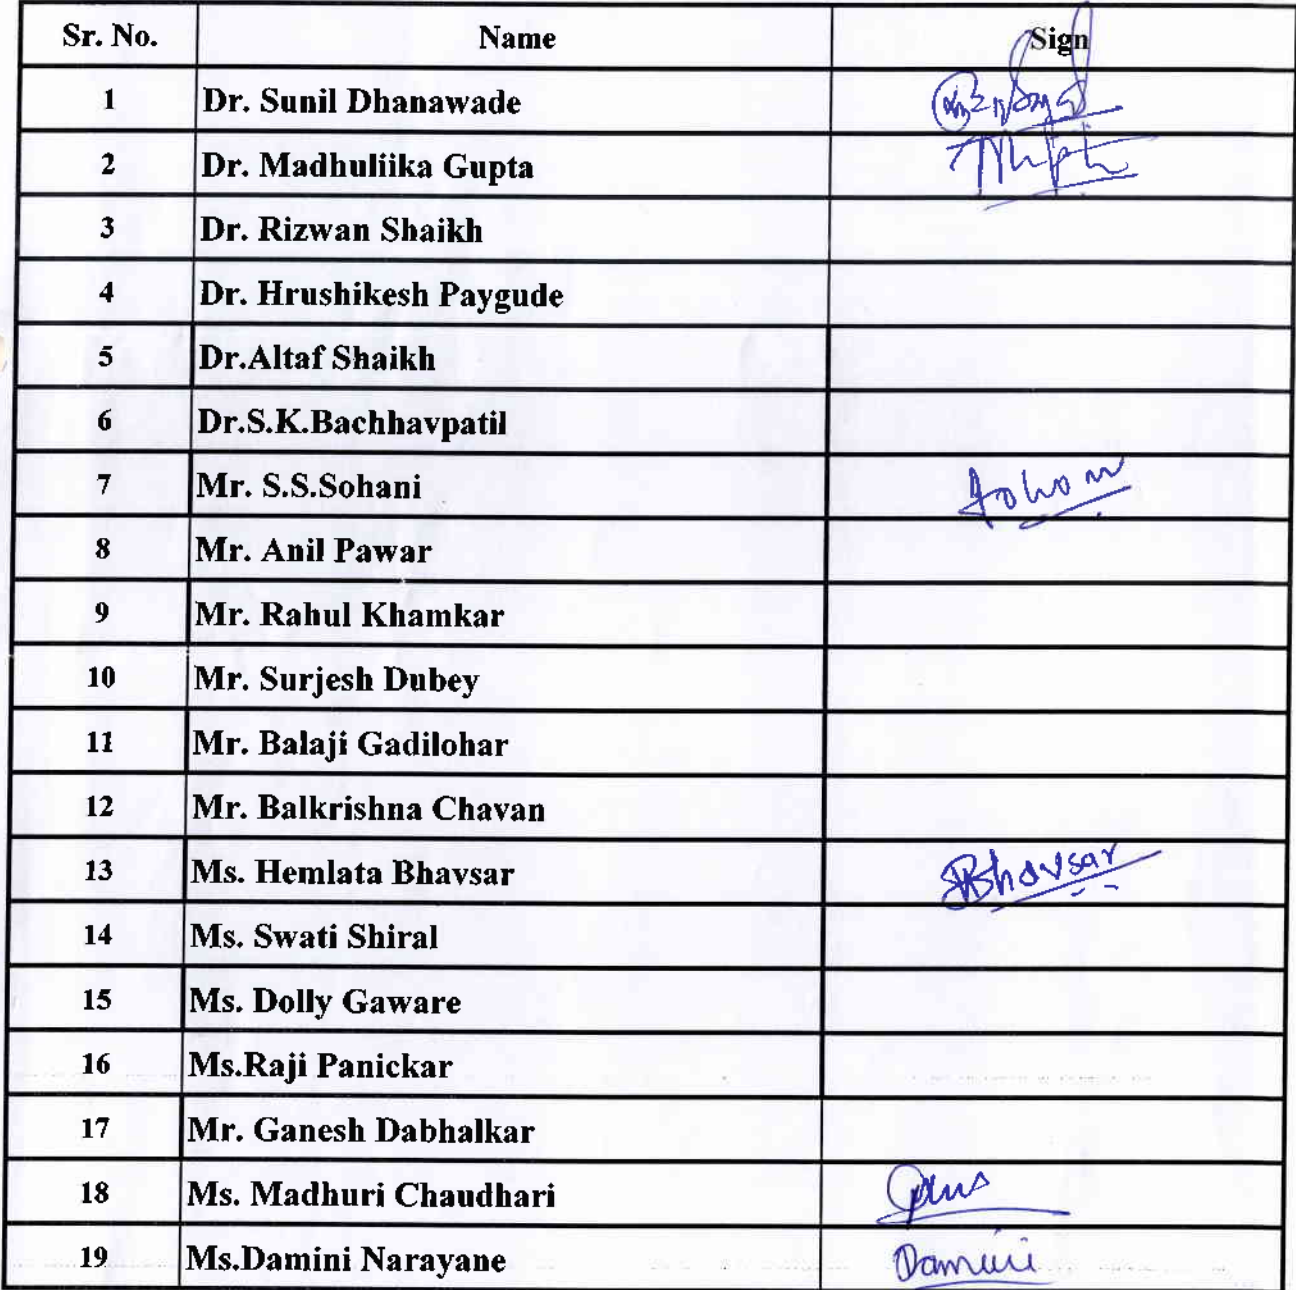 Sr. No. Name Sign
1 Dr. Sunil Dhanawade
2 Dr. Madhuliika Gupta
3 Dr. Rizwan Shaikh
4 Dr. Hrushikesh Paygude
5 Dr.Altaf Shaikh
6 Dr.S.K.Bachhavpatil
7 Mr. S.S.Sohani
8 Mr. Anil Pawar
9 Mr. Rahul Khamkar
10 Mr. Surjesh Dubey
11 Mr. Balaji Gadilohar
12 Mr. Balkrishna Chavan
13 Ms. Hemlata Bhavsar Bhavsar
14 Ms. Swati Shiral
15 Ms. Dolly Gaware
16 Ms.Raji Panickar
17 Mr. Ganesh Dabhalkar
18 Ms. Madhuri Chaudhari
19 Ms.Damini Narayane Damini